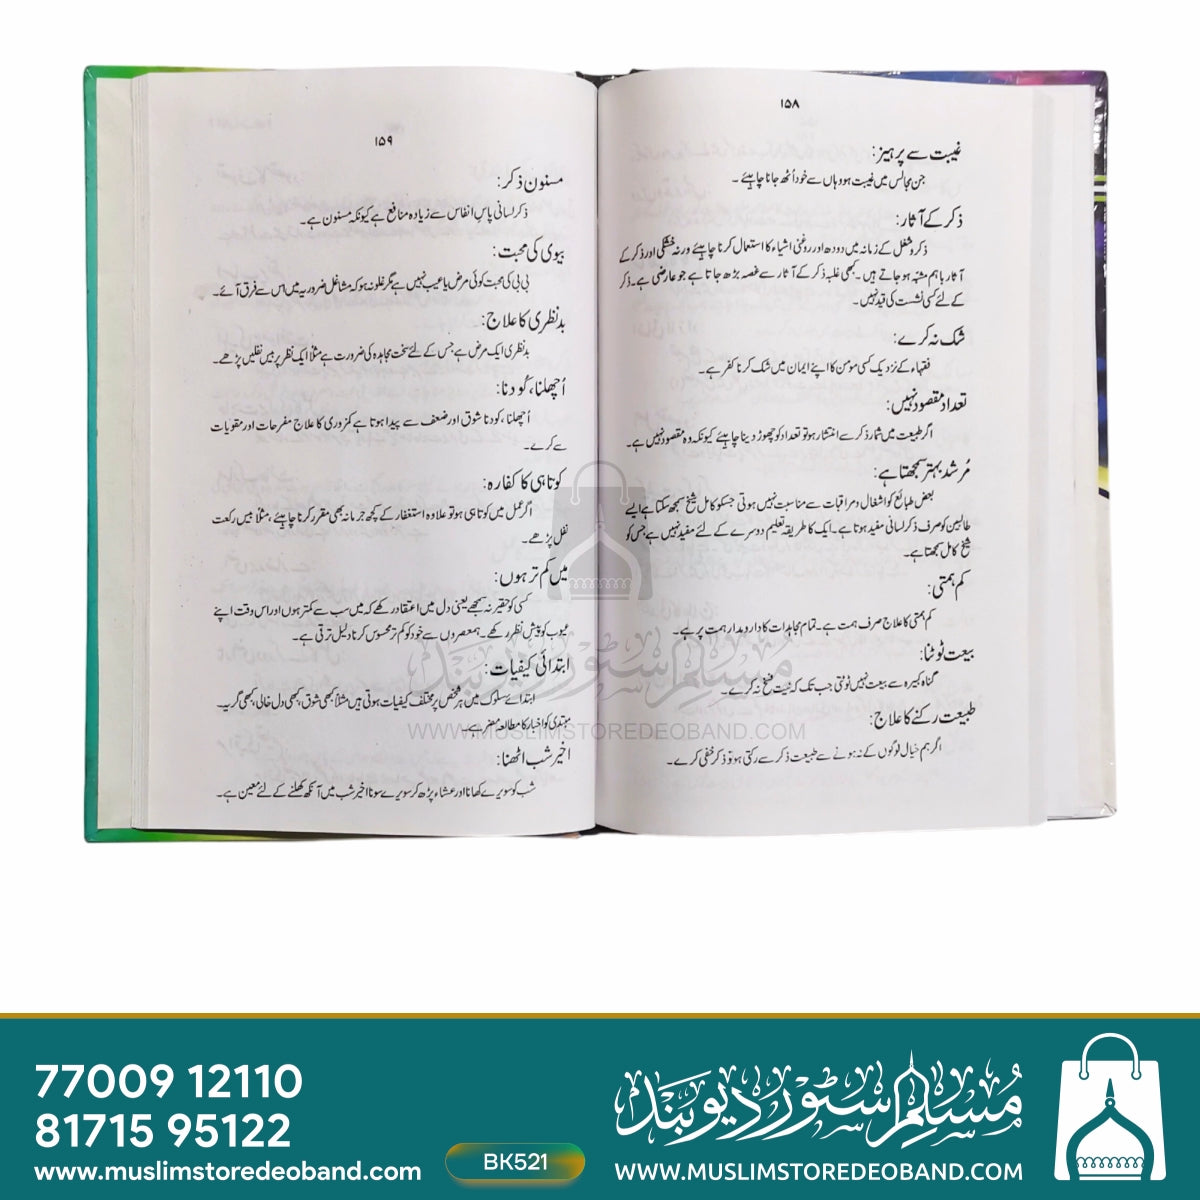 ۱۵۸
غیبت سے پرہیز:
جن مجالس میں غیبت ہو وہاں سے خود اُٹھ جانا چاہئے ۔
ذکر کے آثار:
ذکر و شغل کے زمانہ میں دودھ اور روغنی اشیاء کا استعمال کرنا چاہئے ورنہ خشکی اور ذکر کے
آثار باہم مشتبہ ہو جاتے ہیں ۔ کبھی غلبہ ذکر کے آثار سے غصہ بڑھ جاتا ہے جو عارضی ہے۔ ذکر
کے لئے کسی نشست کی قید نہیں ۔
شک نہ کرے:
فقہاء کے نزدیک کسی مومن کا اپنے ایمان میں شک کرنا کفر ہے۔
تعداد مقصود نہیں:
اگر طبیعت میں شمار ذکر سے انتشار ہو تو تعداد کو چھوڑ دینا چاہئے کیونکہ وہ مقصود نہیں ہے۔
مُرشد بہتر سمجھتا ہے:
بعض طبائع کو اشغال و مراقبات سے مناسبت نہیں ہوتی جسکو کامل شیخ سمجھ سکتا ہے ایسے
طالبین کو صرف ذکر لسانی مفید ہوتا ہے۔ ایک کا طریقہ تعلیم دوسرے کے لئے مفید نہیں ہے جس کو
شیخ کامل سمجھتا ہے۔
کم ہمتی:
کم ہمتی کا علاج صرف ہمت ہے۔ تمام مجاہدات کا دارومدار ہمت پر ہے۔
بیعت ٹوٹنا:
گناہ کبیرہ سے بیعت نہیں ٹوٹتی جب تک کہ نیت فسخ نہ کرے۔
طبیعت رکنے کا علاج:
اگر ہم خیال لوگوں کے نہ ہونے سے طبیعت ذکر سے رکتی ہو تو ذکر خفی کرے۔
۱۵۹
مسنون ذکر:
ذکر لسانی پاس انفاس سے زیادہ منافع ہے کیونکہ مسنون ہے۔
بیوی کی محبت:
بی بی کی محبت کوئی مرض یا عیب نہیں ہے مگر غلو نہ ہو کہ مشاغل ضروریہ میں اس سے فرق آئے۔
بد نظری کا علاج:
بد نظری ایک مرض ہے جس کے لئے سخت مجاہدہ کی ضرورت ہے مثلاً ایک نظر پر بیس نفلیں پڑھے۔
اُچھلنا، کُودنا:
اُچھلنا ، کودنا شوق اور ضعف سے پیدا ہوتا ہے کمزوری کا علاج مفرحات اور مقویات
سے کرے۔
کوتاہی کا کفارہ:
اگر عمل میں کوتاہی ہو تو علاوہ استغفار کے کچھ جرمانہ بھی مقرر کرنا چاہئے ، مثلاً بیس رکعت
نفل پڑھے۔
میں کم تر ہوں:
کسی کو حقیر نہ سمجھے یعنی دل میں اعتقاد رکھے کہ میں سب سے کمتر ہوں اور اس وقت اپنے
عیوب کو پیش نظر رکھے۔ ہمعصروں سے خود کو کم تر محسوس کرنا دلیل ترقی ہے۔
ابتدائی کیفیات:
ابتدائے سلوک میں ہر شخص پر مختلف کیفیات ہوتی ہیں مثلاً کبھی شوق، کبھی دل خالی، کبھی گریہ۔
مبتدی کو اخبار کا مطالعہ مضر ہے۔
اخیر شب اٹھنا:
شب کو سویرے کھانا اور عشاء پڑھ کر سویرے سونا اخیر شب میں آنکھ کھلنے کے لئے معین ہے۔
مسلم سٹور دیوبند
WWW.MUSLIMSTOREDEOBAND.COM
77009 12110
81715 95122
www.muslimstoredeoband.com
BK521
مسلم سٹور دیوبند
WWW.MUSLIMSTOREDEOBAND.COM